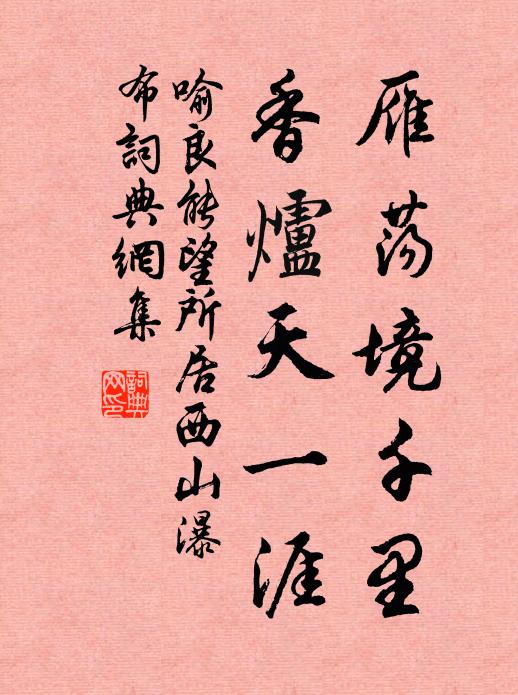 雁荡境千里
香爐天一涯
喻良能望所居西山瀑
布詞典網集
詞典网印